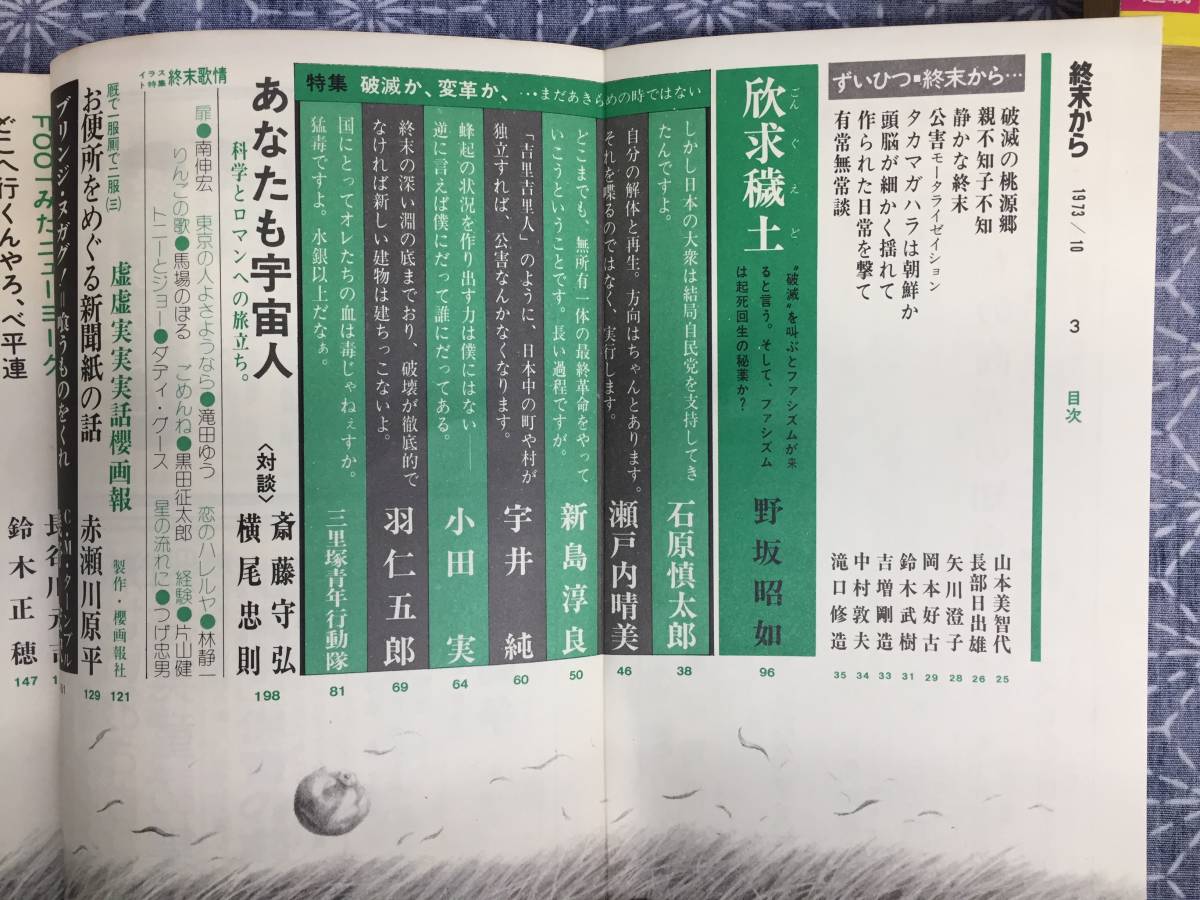 終末から 1973/10 3 目次
ずいひつ■終末から…
破滅の桃源郷 山本美智代 25
親不知子不知 長部日出雄 26
静かな終末 矢川澄子 28
公害モータライゼイション 岡本好古 29
タカマガハラは朝鮮か 鈴木武樹 31
頭脳が細かく揺れて 吉増剛造 33
作られた日常を撃て 中村敦夫 34
有常無常談 滝口修造 35
欣求穢土 ごんぐえど
“破滅”を叫ぶとファシズムが来
ると言う。そして、ファシズム
は起死回生の秘薬か?
野坂昭如 96
特集 破滅か、変革か、…まだあきらめの時ではない
しかし日本の大衆は結局自民党を支持してき
たんですよ。
石原慎太郎 38
自分の解体と再生。方向はちゃんとあります。
それを喋るのではなく、実行します。
瀬戸内晴美 46
どこまでも、無所有一体の最終革命をやって
いこうということです。長い過程ですが。
新島淳良 50
「吉里吉里人」のように、日本中の町や村が
独立すれば、公害なんかなくなります。
宇井純 60
蜂起の状況を作り出す力は僕にはない——
逆に言えば僕にだって誰にだってある。
小田実 64
終末の深い淵の底までおり、破壊が徹底的で
なければ新しい建物は建ちっこないよ。
羽仁五郎 69
国にとってオレたちの血は毒じゃねぇすか。
猛毒ですよ。水銀以上だなぁ。
三里塚青年行動隊 81
あなたも宇宙人
科学とロマンへの旅立ち。
〈対談〉
斎藤守弘
横尾忠則
198
イラスト特集 終末歌情
扉●南伸宏 東京の人よさようなら●滝田ゆう 恋のハレルヤ●林静一
りんごの歌●馬場のぼる ごめんね●黒田征太郎 経験●片山健
トニーとジョー●ダディ・グース 星の流れに●つげ忠男
厩で一服厠で二服(三)
虚虚実実実話櫻画報 製作・櫻画報社 121
お便所をめぐる新聞紙の話 赤瀬川原平 129
ブリンジ・ヌガグ!=喰うものをくれ C・M・ターンブル
FOOLみたニューヨーク 長谷川元吉
どこへ行くんやろ、べ平連 鈴木正穂 147